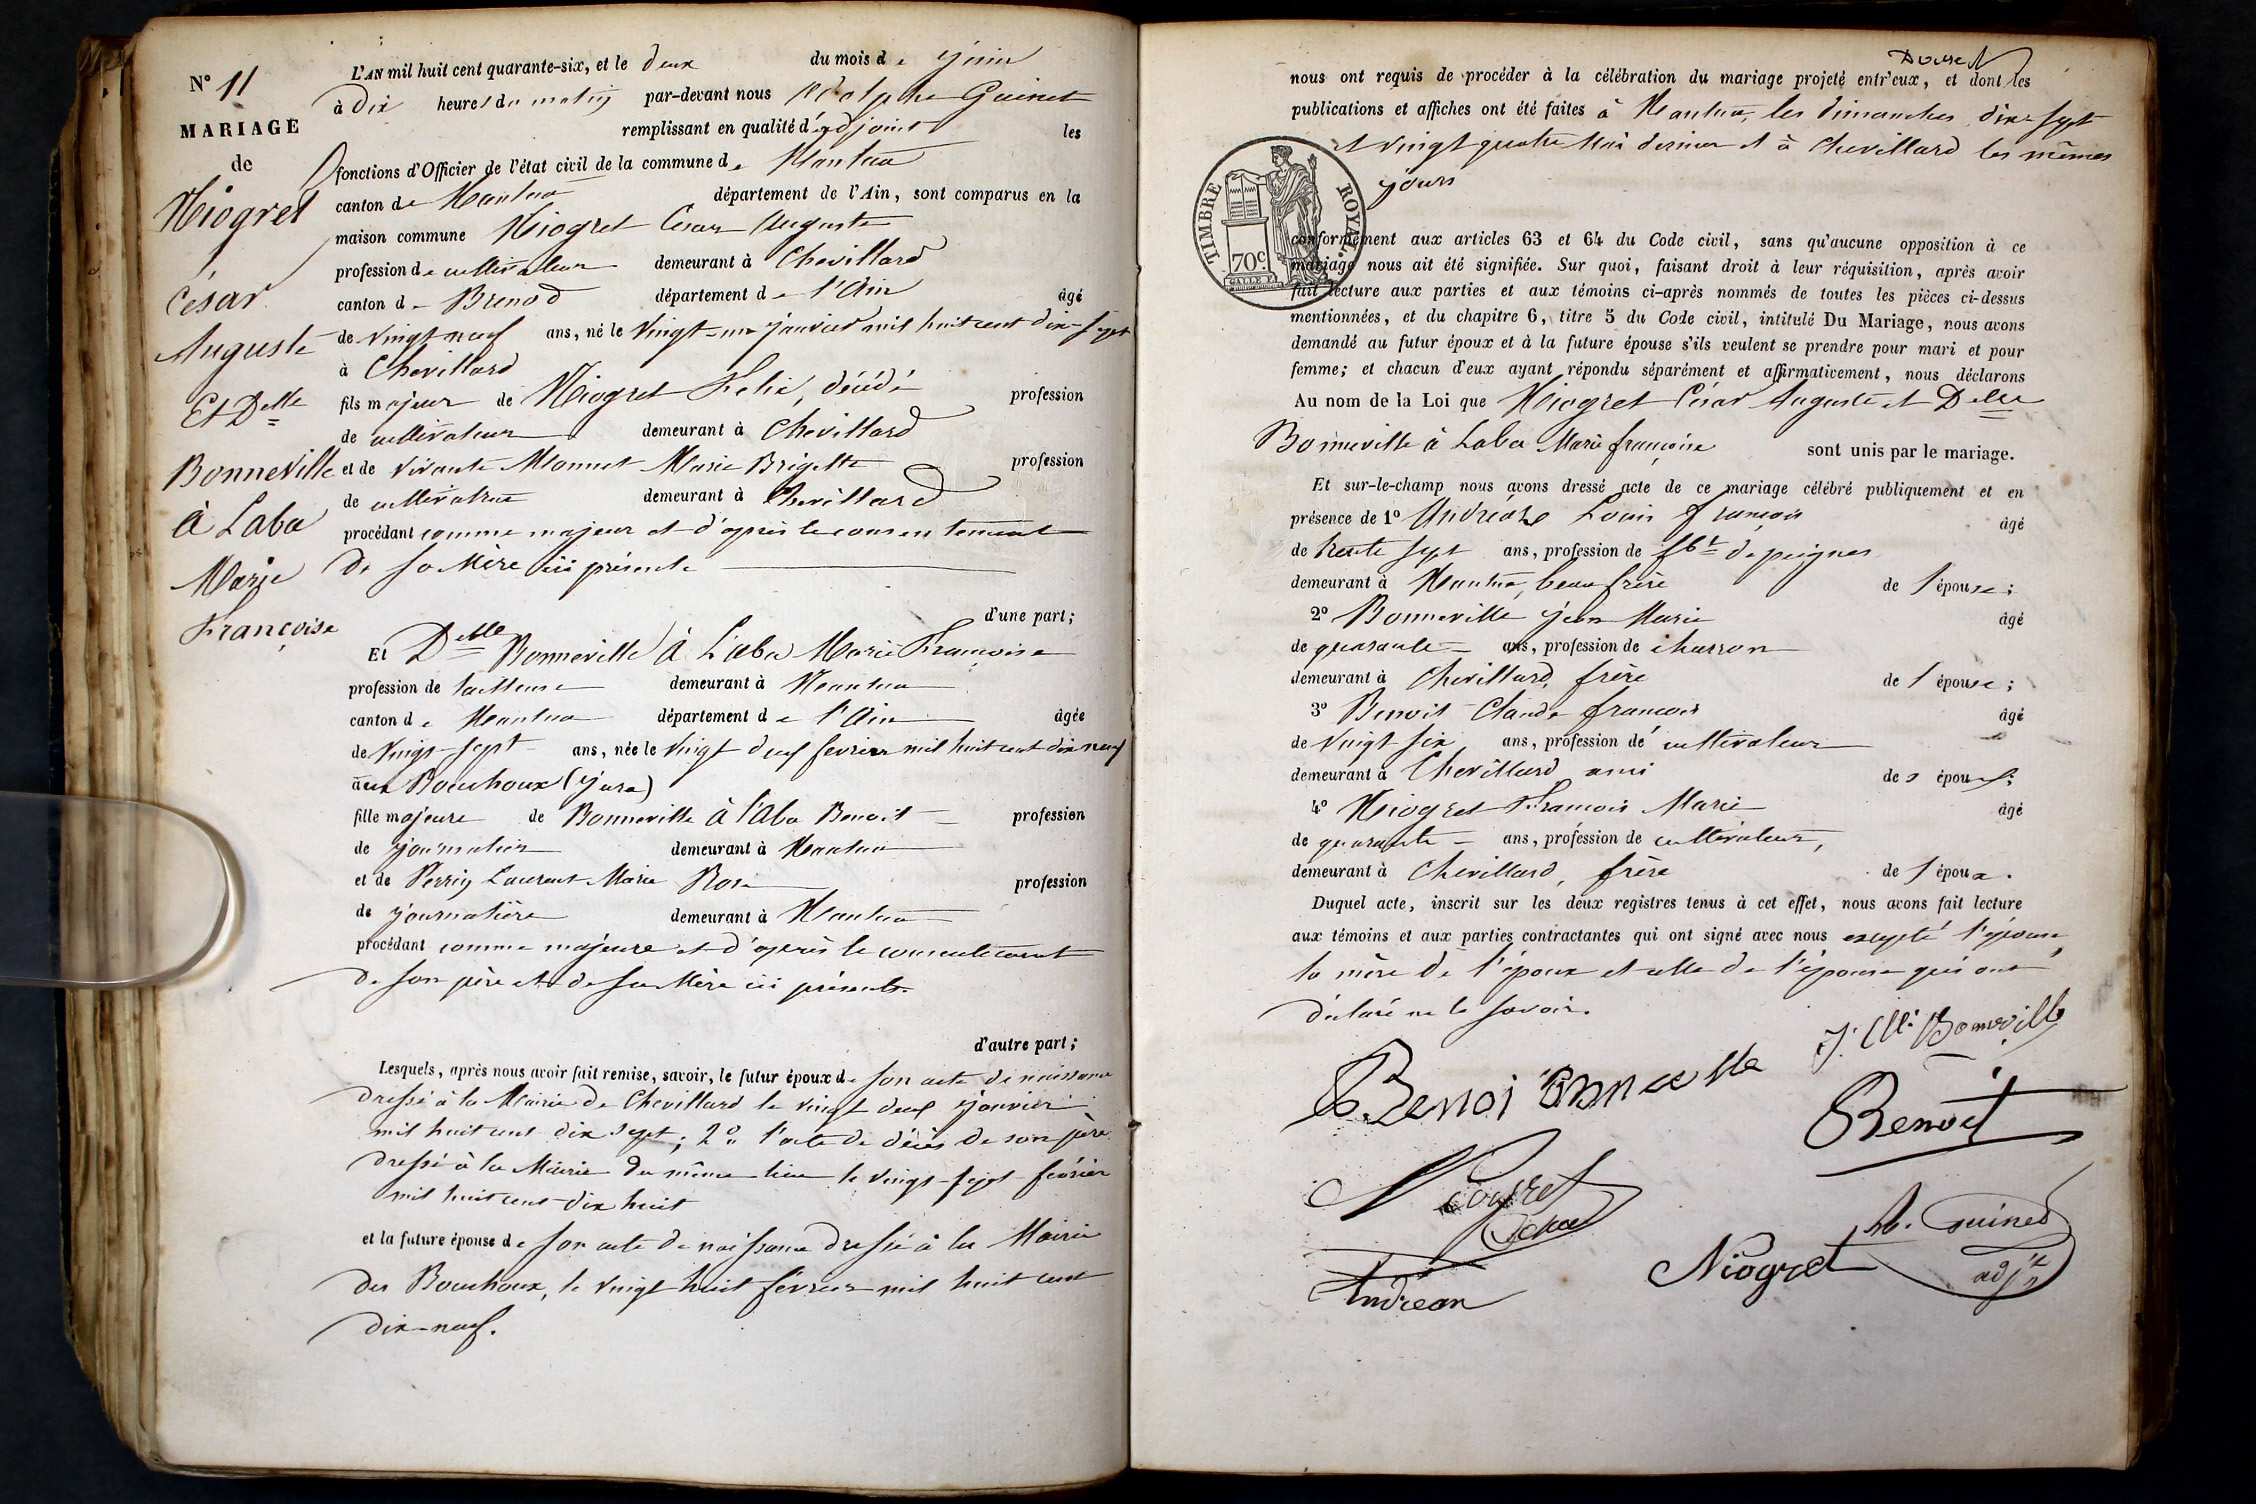 N° 11
MARIAGE
de
Niogret
César
Auguste
Et Delle
Bonneville
à Laba
Marie
Françoise
L'AN mil huit cent quarante-six, et le deux du mois de juin
à dix heures du matin par-devant nous Adolphe Guinet
remplissant en qualité d'adjoint les
fonctions d'Officier de l'état civil de la commune de Nantua
canton de Nantua département de l'Ain, sont comparus en la
maison commune Niogret César Auguste
profession de cultivateur demeurant à Chevillard
canton de Brenod département de l'Ain âgé
de vingt neuf ans, né le vingt-un janvier mil huit cent dix-sept
à Chevillard
fils majeur de Niogret Felix, décédé profession
de cultivateur demeurant à Chevillard
et de vivante Monnet Marie Brigitte profession
de cultivatrice demeurant à Chevillard
procédant comme majeur et d'après le consentement
de sa Mère ici présente
d'une part;
Et Delle Bonneville à Laba Marie Françoise
profession de tailleuse demeurant à Nantua
canton de Nantua département de l'Ain âgée
de vingt-sept ans, née le vingt deux fevrier mil huit cent dix neuf
aux Bouchoux (Jura)
fille majeure de Bonneville à l'Aba Benoit profession
de journalier demeurant à Nantua
et de Perrin Laurent Marie Rose profession
de journalière demeurant à Nantua
procédant comme majeure et d'après le consentement
de son père et de sa Mère ici présents.
d'autre part;
Lesquels, après nous avoir fait remise, savoir, le futur époux de son acte de naissance
dressé à la Mairie de Chevillard le vingt deux janvier
mil huit cent dix sept; 2° l'acte de décès de son père
dressé à la Mairie du même lieu le vingt-sept février
mil huit cent dix huit
et la future épouse de son acte de naissance dressé à la Mairie
des Bouchoux, le vingt huit février mil huit cent
dix-neuf.
nous ont requis de procéder à la célébration du mariage projeté entr'eux, et dont les
publications et affiches ont été faites à Nantua, les dimanches dix-sept
et vingt quatre Mai dernier et à Chevillard les mêmes
jours
TIMBRE ROYAL.
70c.
conformément aux articles 63 et 64 du Code civil, sans qu'aucune opposition à ce
mariage nous ait été signifiée. Sur quoi, faisant droit à leur réquisition, après avoir
fait lecture aux parties et aux témoins ci-après nommés de toutes les pièces ci-dessus
mentionnées, et du chapitre 6, titre 5 du Code civil, intitulé Du Mariage, nous avons
demandé au futur époux et à la future épouse s'ils veulent se prendre pour mari et pour
femme; et chacun d'eux ayant répondu séparément et affirmativement, nous déclarons
Au nom de la Loi que Niogret César Auguste et Delle
Bonneville à Laba Marie françoise sont unis par le mariage.
Et sur-le-champ nous avons dressé acte de ce mariage célébré publiquement et en
présence de 1° Andréan Louis françois âgé
de trente sept ans, profession de fbt de peignes
demeurant à Nantua, beau frère de l'épouse;
2° Bonneville Jean Marie âgé
de quarante ans, profession de charron
demeurant à Chevillard, frère de l'épouse;
3° Benoit Claude françois âgé
de vingt six ans, profession de cultivateur
demeurant à Chevillard ami des époux;
4° Niogret François Marie âgé
de quarante ans, profession de cultivateur,
demeurant à Chevillard, frère de l'époux.
Duquel acte, inscrit sur les deux registres tenus à cet effet, nous avons fait lecture
aux témoins et aux parties contractantes qui ont signé avec nous excepté l'épouse,
la mère de l'époux et celle de l'épouse qui ont
déclaré ne le savoir.
J. M. Bonneville
Benoit
Niogret
Andrean
Niogret
Ad. Guinet
adjt